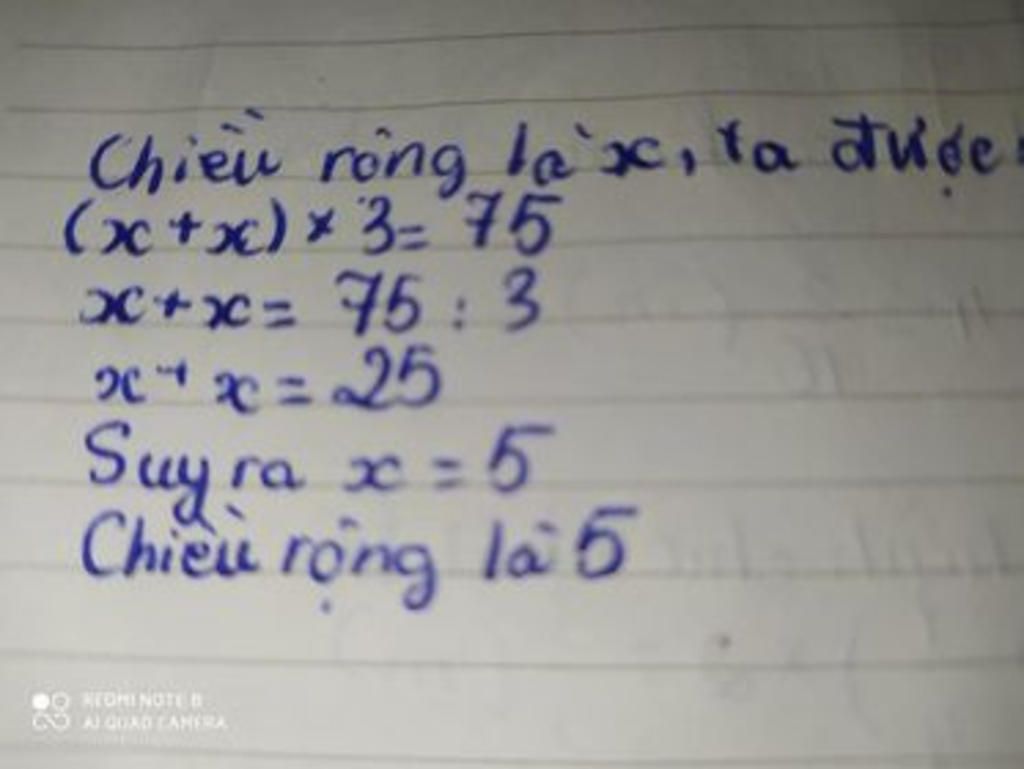 Chiều rộng là x, ta được:
(x + x) × 3 = 75
x + x = 75 : 3
x + x = 25
Suy ra x = 5
Chiều rộng là 5
REDMI NOTE 8
AI QUAD CAMERA